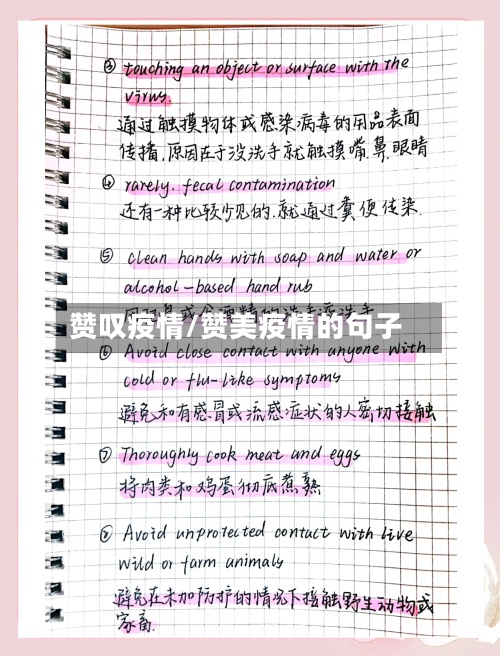 ③ touching an object or surface with the
virus.
通过触摸物体或感染病毒的用品表面
传播,原因在于没洗手就触摸嘴.鼻.眼睛
④ rarely. fecal contamination
还有一种比较少见的.就通过粪便传染.
⑤ clean hands with soap and water or
alcohol-based hand rub
赞叹疫情/赞美疫情的句子
⑥ Avoid close contact with anyone with
cold or flu-like symptoms
避免和有感冒或流感症状的人密切接触
⑦ Thoroughly cook meat and eggs
将肉类和鸡蛋彻底煮熟
⑧ Avoid unprotected contact with live
wild or farm animals
避免在未加防护的情况下接触野生动物或
家畜.